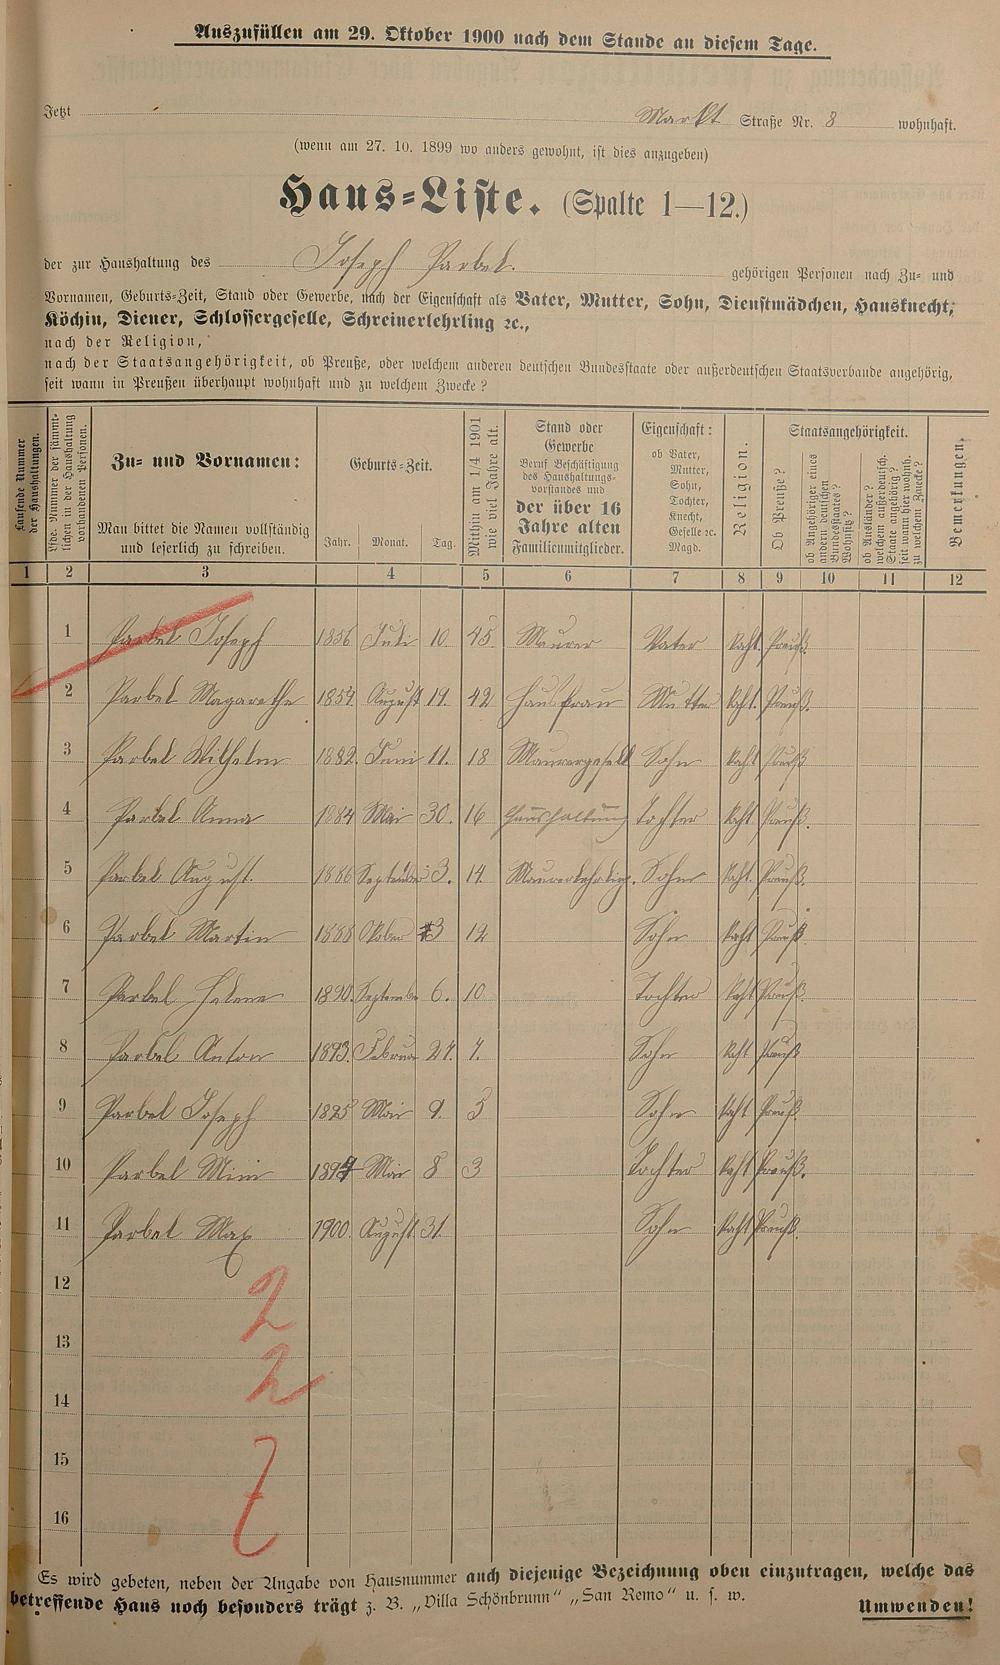 Auszufüllen am 29. Oktober 1900 nach dem Stande an diesem Tage.
Jetzt Markt Straße Nr. 8 wohnhaft.
(wenn am 27. 10. 1899 wo anders gewohnt, ist dies anzugeben)
Haus-Liste. (Spalte 1—12.)
der zur Haushaltung des Joseph Parbel. gehörigen Personen nach Zu- und
Vornamen, Geburts-Zeit, Stand oder Gewerbe, nach der Eigenschaft als Vater, Mutter, Sohn, Dienstmädchen, Hausknecht,
Köchin, Diener, Schlossergeselle, Schreinerlehrling ꝛc.,
nach der Religion,
nach der Staatsangehörigkeit, ob Preuße, oder welchem anderen deutschen Bundesstaate oder außerdeutschen Staatsverbande angehörig,
seit wann in Preußen überhaupt wohnhaft und zu welchem Zwecke?
Laufende Nummer der Haushaltungen.
Lfde. Nummer der sämmtlichen in der Haushaltung vorhandenen Personen.
Zu- und Vornamen:
Man bittet die Namen vollständig
und leserlich zu schreiben.
Geburts-Zeit.
Jahr. Monat. Tag.
Mithin am 1/4 1901 wie viel Jahre alt.
Stand oder
Gewerbe
Beruf Beschäftigung
des Haushaltungs-
vorstandes und
der über 16
Jahre alten
Familienmitglieder.
Eigenschaft:
ob Vater,
Mutter,
Sohn,
Tochter,
Knecht,
Geselle ꝛc.
Magd.
Religion.
Staatsangehörigkeit.
Ob Preuße?
ob Angehöriger eines
andern deutschen
Bundesstaates?
Wohnsitz?
ob Ausländer?
welchem außerdeutsch.
Staate angehörig?
seit wann hier wohnh.
zu welchem Zwecke?
Bemerkungen.
1 2 3 4 5 6 7 8 9 10 11 12
1 Parbel Joseph 1856 Juli 10. 45 Maurer Vater Kaht. Preuß.
2 Parbel Magarethe 1859 August 19. 42 Hausfrau Mutter Kaht. Preuß.
3 Parbel Wilhelm 1882. Juni 11. 18 Maurergesell Sohn Kaht Preuß
4 Parbel Anna 1884 Mai 30. 16 Haushaltung Tochter Kaht Preuß.
5 Parbel August. 1886 September 3. 14 Maurerlehrling. Sohn Kaht. Preuß.
6 Parbel Martin 1888 Oktober 3 12 Sohn Kaht Preuß
7 Parbel Helene 1890. September 6. 10 Tochter Kaht Preuß.
8 Parbel Anton 1893. Februar 27. 7. Sohn Kaht Preuß
9 Parbel Joseph 1895 Mai 9. 5 Sohn Kaht Preuß.
10 Parbel Mini 1897 Mai 8 3 Tochter Kaht Preuß.
11 Parbel Max 1900. August 31. Sohn Kaht Preuß.
12
2
13
2
14
15
16
Es wird gebeten, neben der Angabe von Hausnummer auch diejenige Bezeichnung oben einzutragen, welche das
betreffende Haus noch besonders trägt z. B. „Villa Schönbrunn" „San Remo" u. s. w.
Umwenden!